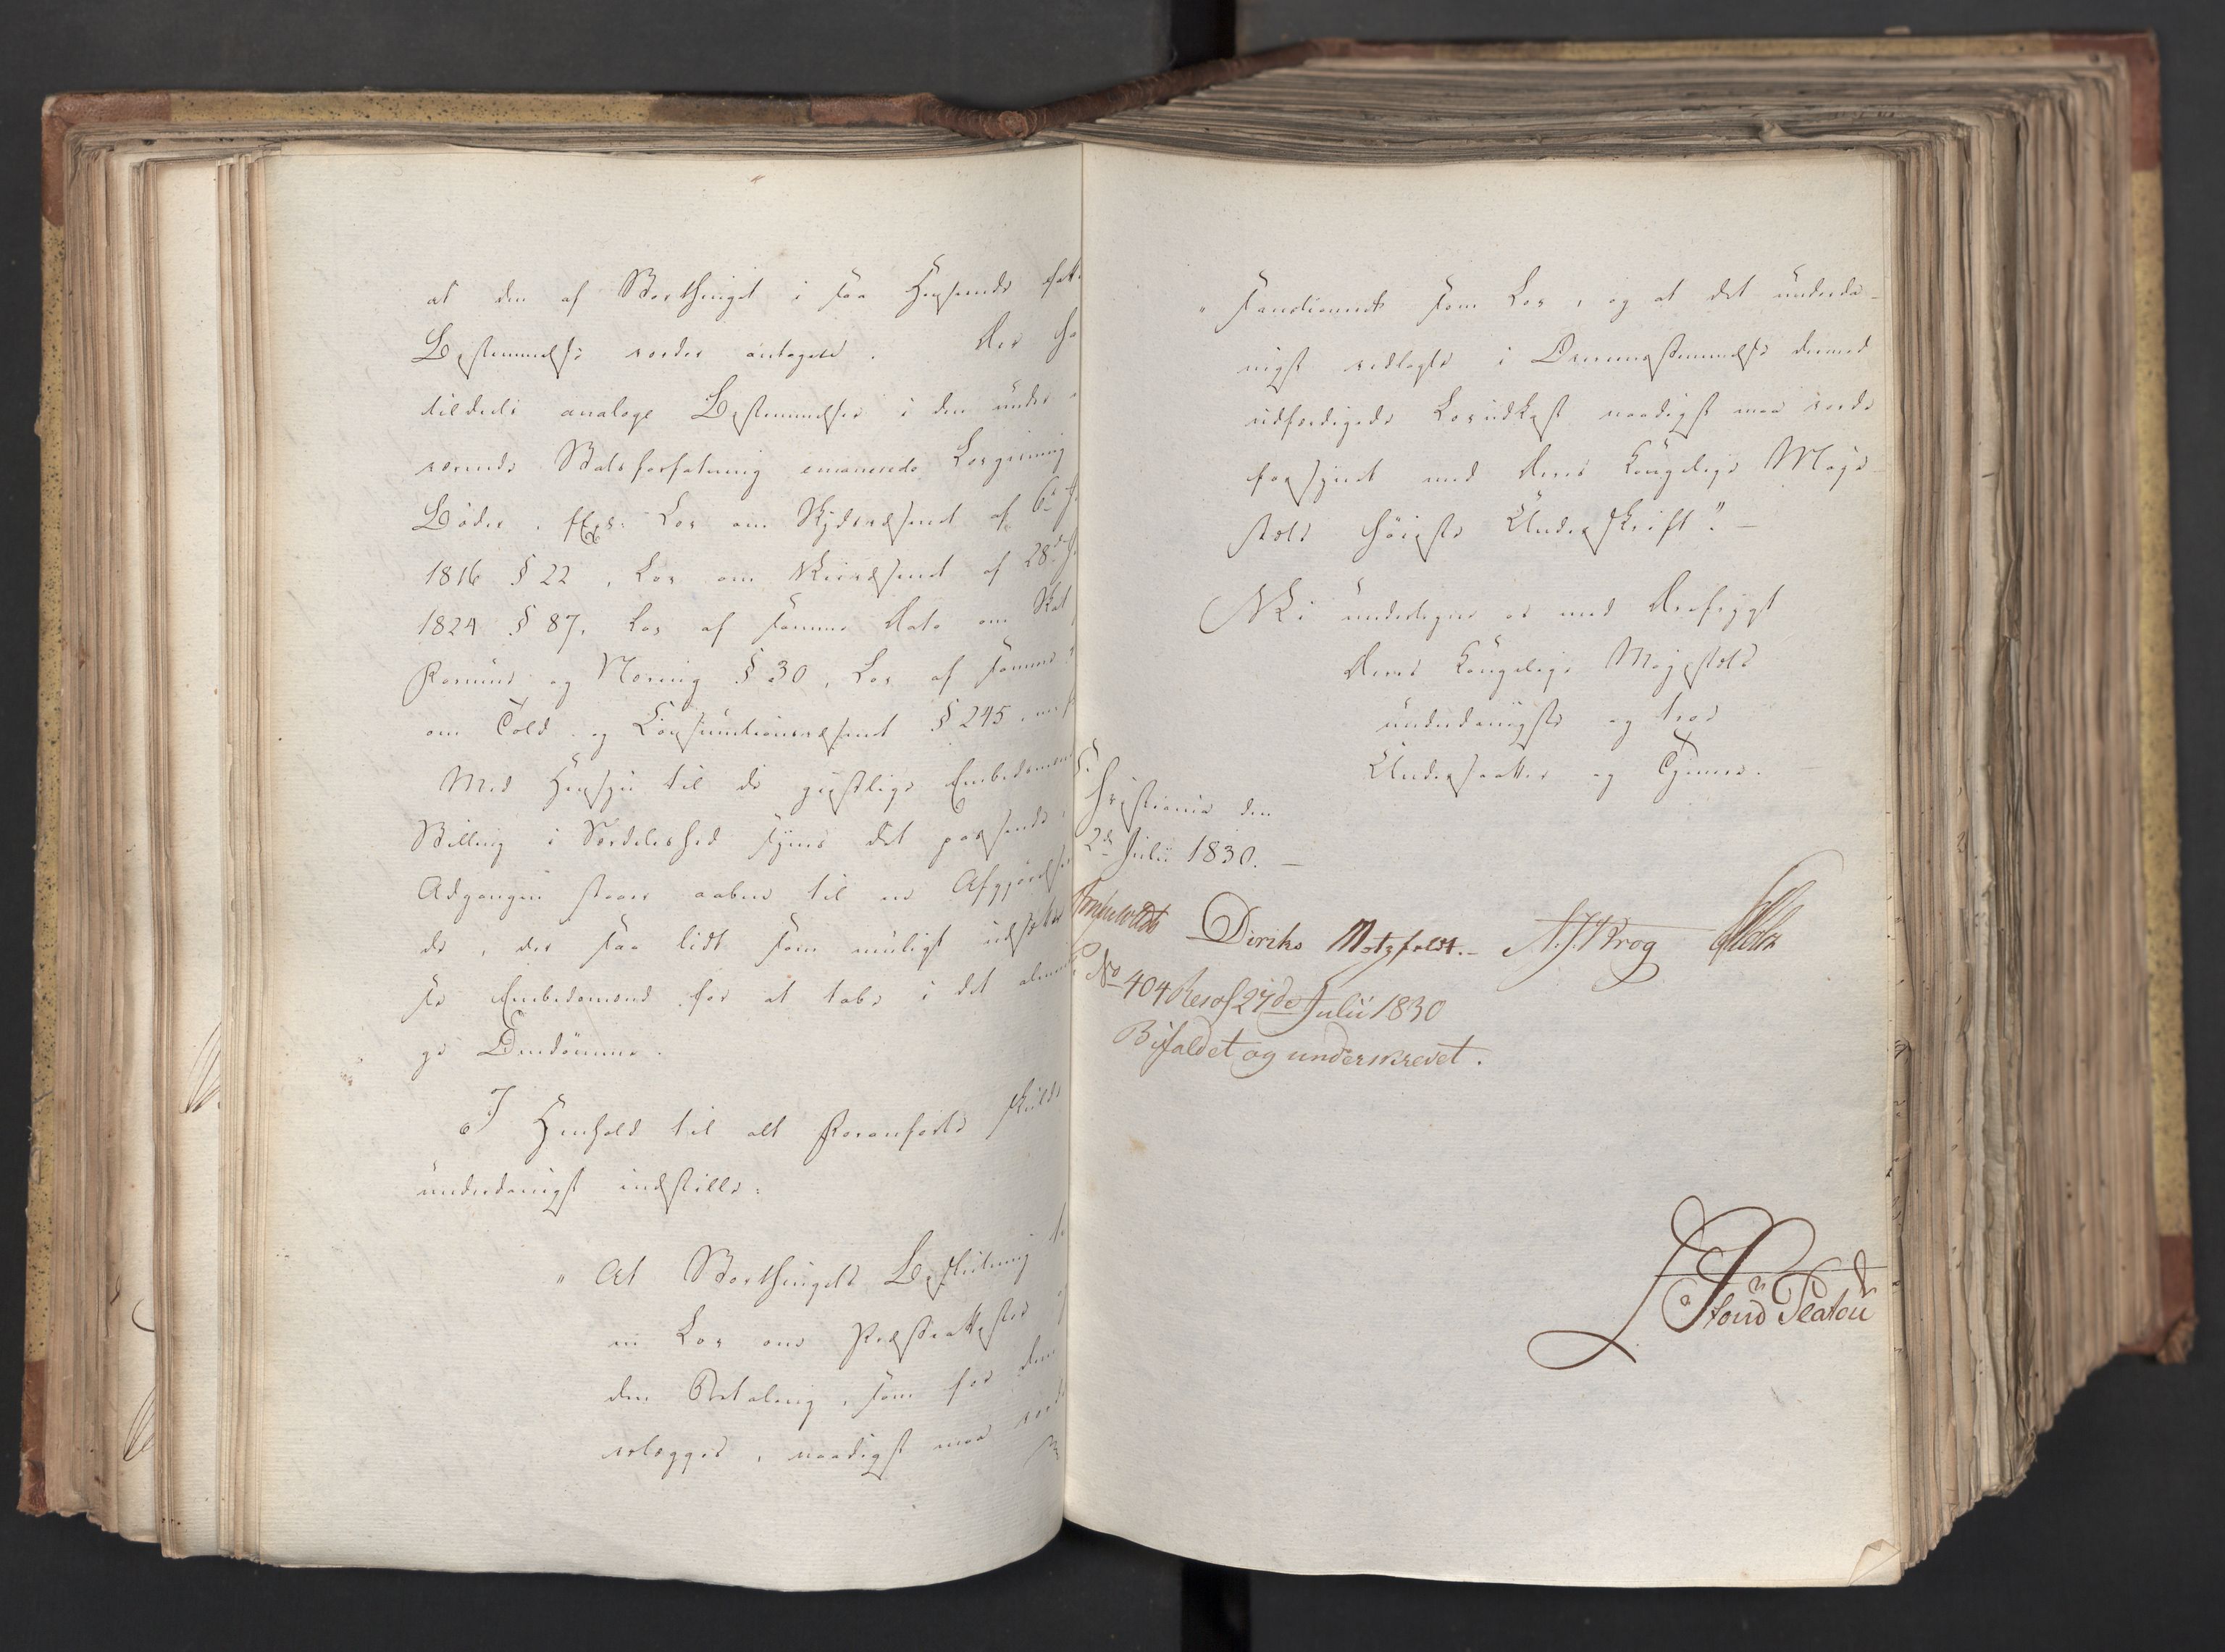 at den af Storthinget i saa Henseende fatt
Bestemmelse vorder antaget. Der ha
tildeels analoge Bestemmelser i den under
værende Statsforfatning emanerede Lovgivning
Bøder, f Ex: Lov om Skydsvæsenet af 6te
1816 § 22, Lov om Veivæsenet af 28de
1824 § 87, Lov af samme Dato om Skat
og Næring § 30, Lov af samme
om Told- og Consumtionsvæsenet § 245,
Med Hensyn til de geistlige Embedsmænd
Stilling i Særdeleshed synes det passende,
Adgangen staaer aaben til en Afgjørelse
de, der saa lidt som muligt udsætter
se Embedsmænd for at tabe i det almind
ge Omdømme.
I Henhold til alt Foranførte skulde
underdanigst indstille:
" At Storthingets Beslutning
en Lov om Præsteattester
den Betaling, som for dem
erlægges, naadigst maa vorde
" sanctioneret som Lov, og at det underda-
nigst vedlagte i Overensstemmelse dermed
udfærdigede Lovudkast naadigst maa vorde
forsynet med Deres Kongelige Maje-
stæts høieste Underskrift". —
Vi undertegne os med Ærefrygt
Deres Kongelige Majestæts
underdanigste og troe
Undersaatter og Tjenere.
Christiania den
2de Julii 1830. —
Diriks Motzfeldt. - A. J. Krog Holst
No 404 Resol 27de Julii 1830
Bifaldet og underskrevet.
Stoud Platou